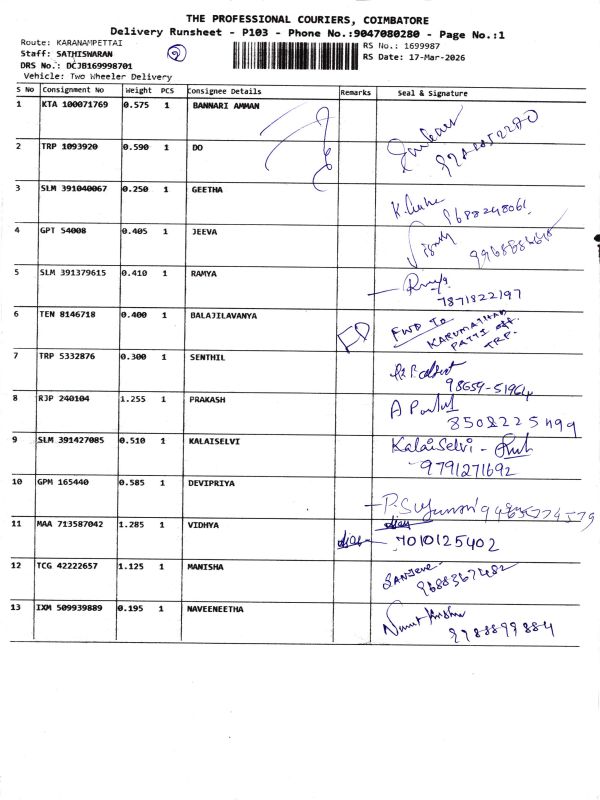 THE PROFESSIONAL COURIERS, COIMBATORE
Delivery Runsheet - P103 - Phone No.:9047080280 - Page No.:1
Route: KARANAMPETTAI
Staff: SATHISWARAN
DRS No.: DCJB169998701
Vehicle: Two Wheeler Delivery
2
RS No.: 1699987
RS Date: 17-Mar-2026
S No Consignment No Weight PCS Consignee Details Remarks Seal & Signature
1 KTA 100071769 0.575 1 BANNARI AMMAN
2 TRP 1093920 0.590 1 DO
3 SLM 391040067 0.250 1 GEETHA
9688248061
4 GPT 54008 0.405 1 JEEVA
5 SLM 391379615 0.410 1 RAMYA
7871822197
6 TEN 8146718 0.400 1 BALAJILAVANYA FWD To
KARUMATHAM
PATTI off.
TRP.
7 TRP 5332876 0.300 1 SENTHIL
98659-51964
8 RJP 240104 1.255 1 PRAKASH
8508225499
9 SLM 391427085 0.510 1 KALAISELVI KalaiSelvi -
9791271692
10 GPM 165440 0.585 1 DEVIPRIYA
11 MAA 713587042 1.285 1 VIDHYA
7010125402
12 TCG 42222657 1.125 1 MANISHA
9688367482
13 IXM 509939889 0.195 1 NAVEENEETHA